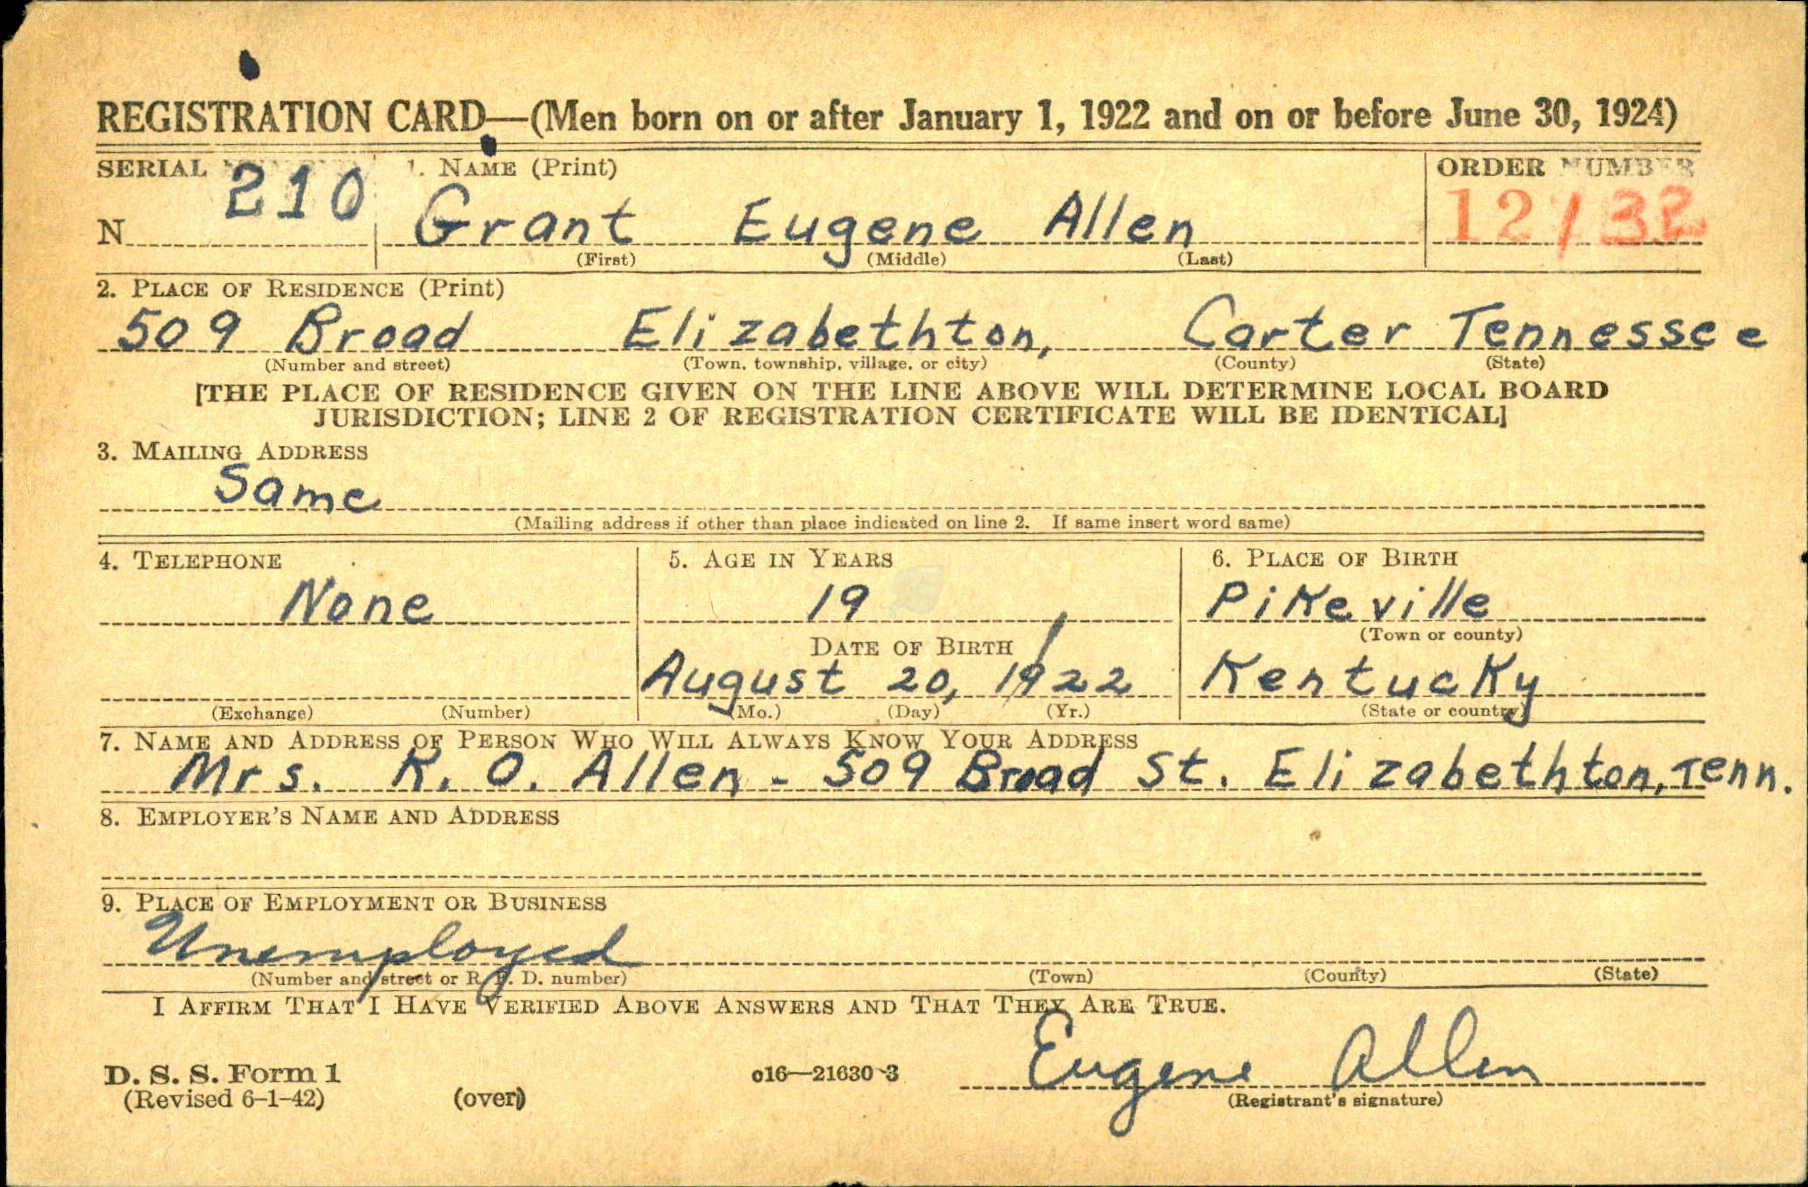 REGISTRATION CARD—(Men born on or after January 1, 1922 and on or before June 30, 1924)
SERIAL 1. NAME (Print) ORDER NUMBER
N 210 Grant Eugene Allen 12132
(First) (Middle) (Last)
2. PLACE OF RESIDENCE (Print)
509 Broad Elizabethton, Carter Tennessee
(Number and street) (Town, township, village, or city) (County) (State)
[THE PLACE OF RESIDENCE GIVEN ON THE LINE ABOVE WILL DETERMINE LOCAL BOARD
JURISDICTION; LINE 2 OF REGISTRATION CERTIFICATE WILL BE IDENTICAL]
3. MAILING ADDRESS
Same
(Mailing address if other than place indicated on line 2. If same insert word same)
4. TELEPHONE 5. AGE IN YEARS 6. PLACE OF BIRTH
None 19 Pikeville
DATE OF BIRTH (Town or county)
August 20, 1922 Kentucky
(Exchange) (Number) (Mo.) (Day) (Yr.) (State or country)
7. NAME AND ADDRESS OF PERSON WHO WILL ALWAYS KNOW YOUR ADDRESS
Mrs. K. O. Allen - 509 Broad St. Elizabethton, Tenn.
8. EMPLOYER'S NAME AND ADDRESS
9. PLACE OF EMPLOYMENT OR BUSINESS
Unemployed
(Number and street or R. F. D. number) (Town) (County) (State)
I AFFIRM THAT I HAVE VERIFIED ABOVE ANSWERS AND THAT THEY ARE TRUE.
Eugene Allen
D. S. S. Form 1 c16—21630-3
(Revised 6-1-42) (over) (Registrant's signature)